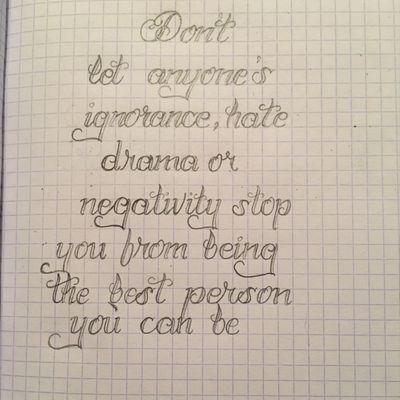 Don't
let anyone's
ignorance, hate
drama or
negativity stop
you from being
the best person
you can be